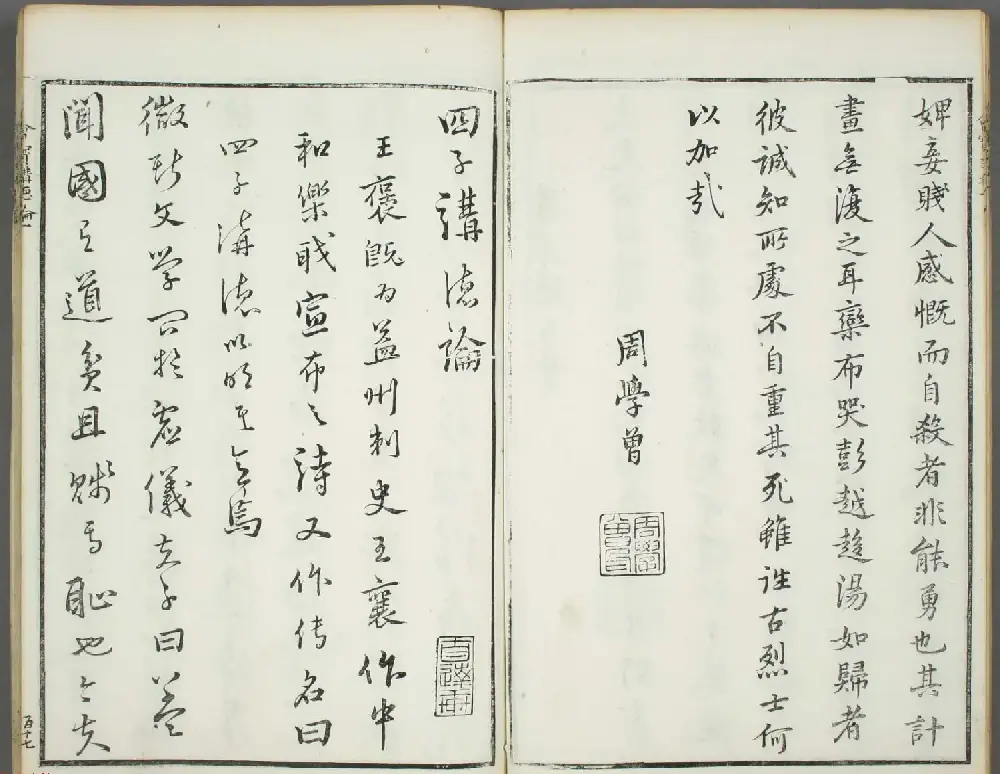 婢妾賤人感慨而自殺者非能勇也其計
畫無復之耳欒布哭彭越趨湯如歸者
彼誠知所處不自重其死雖往古烈士何
以加哉
周學曾
周學曾印
四子講德論
王褒既为益州刺史王襄作中
和樂職宣布之詩又作传名曰
四子講德以明其意焉
微斯文学问於虚儀夫子曰蓋
聞國有道貧且賤焉恥也今夫
百十七